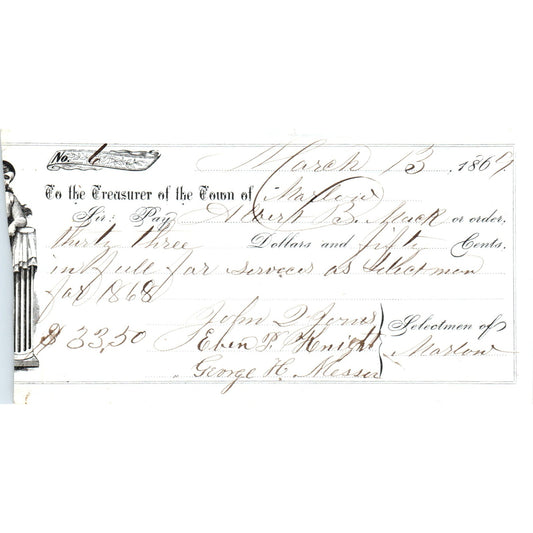 No. 6
March 13 1869
To the Treasurer of the Town of Marlow
Sir: Pay Albert B. Mack or order,
thirty three Dollars and fifty Cents,
in full for services as Selectman
for 1868
$33,50
John Q Jones
Eben P. Knight
George H. Messer
Selectmen of
Marlow